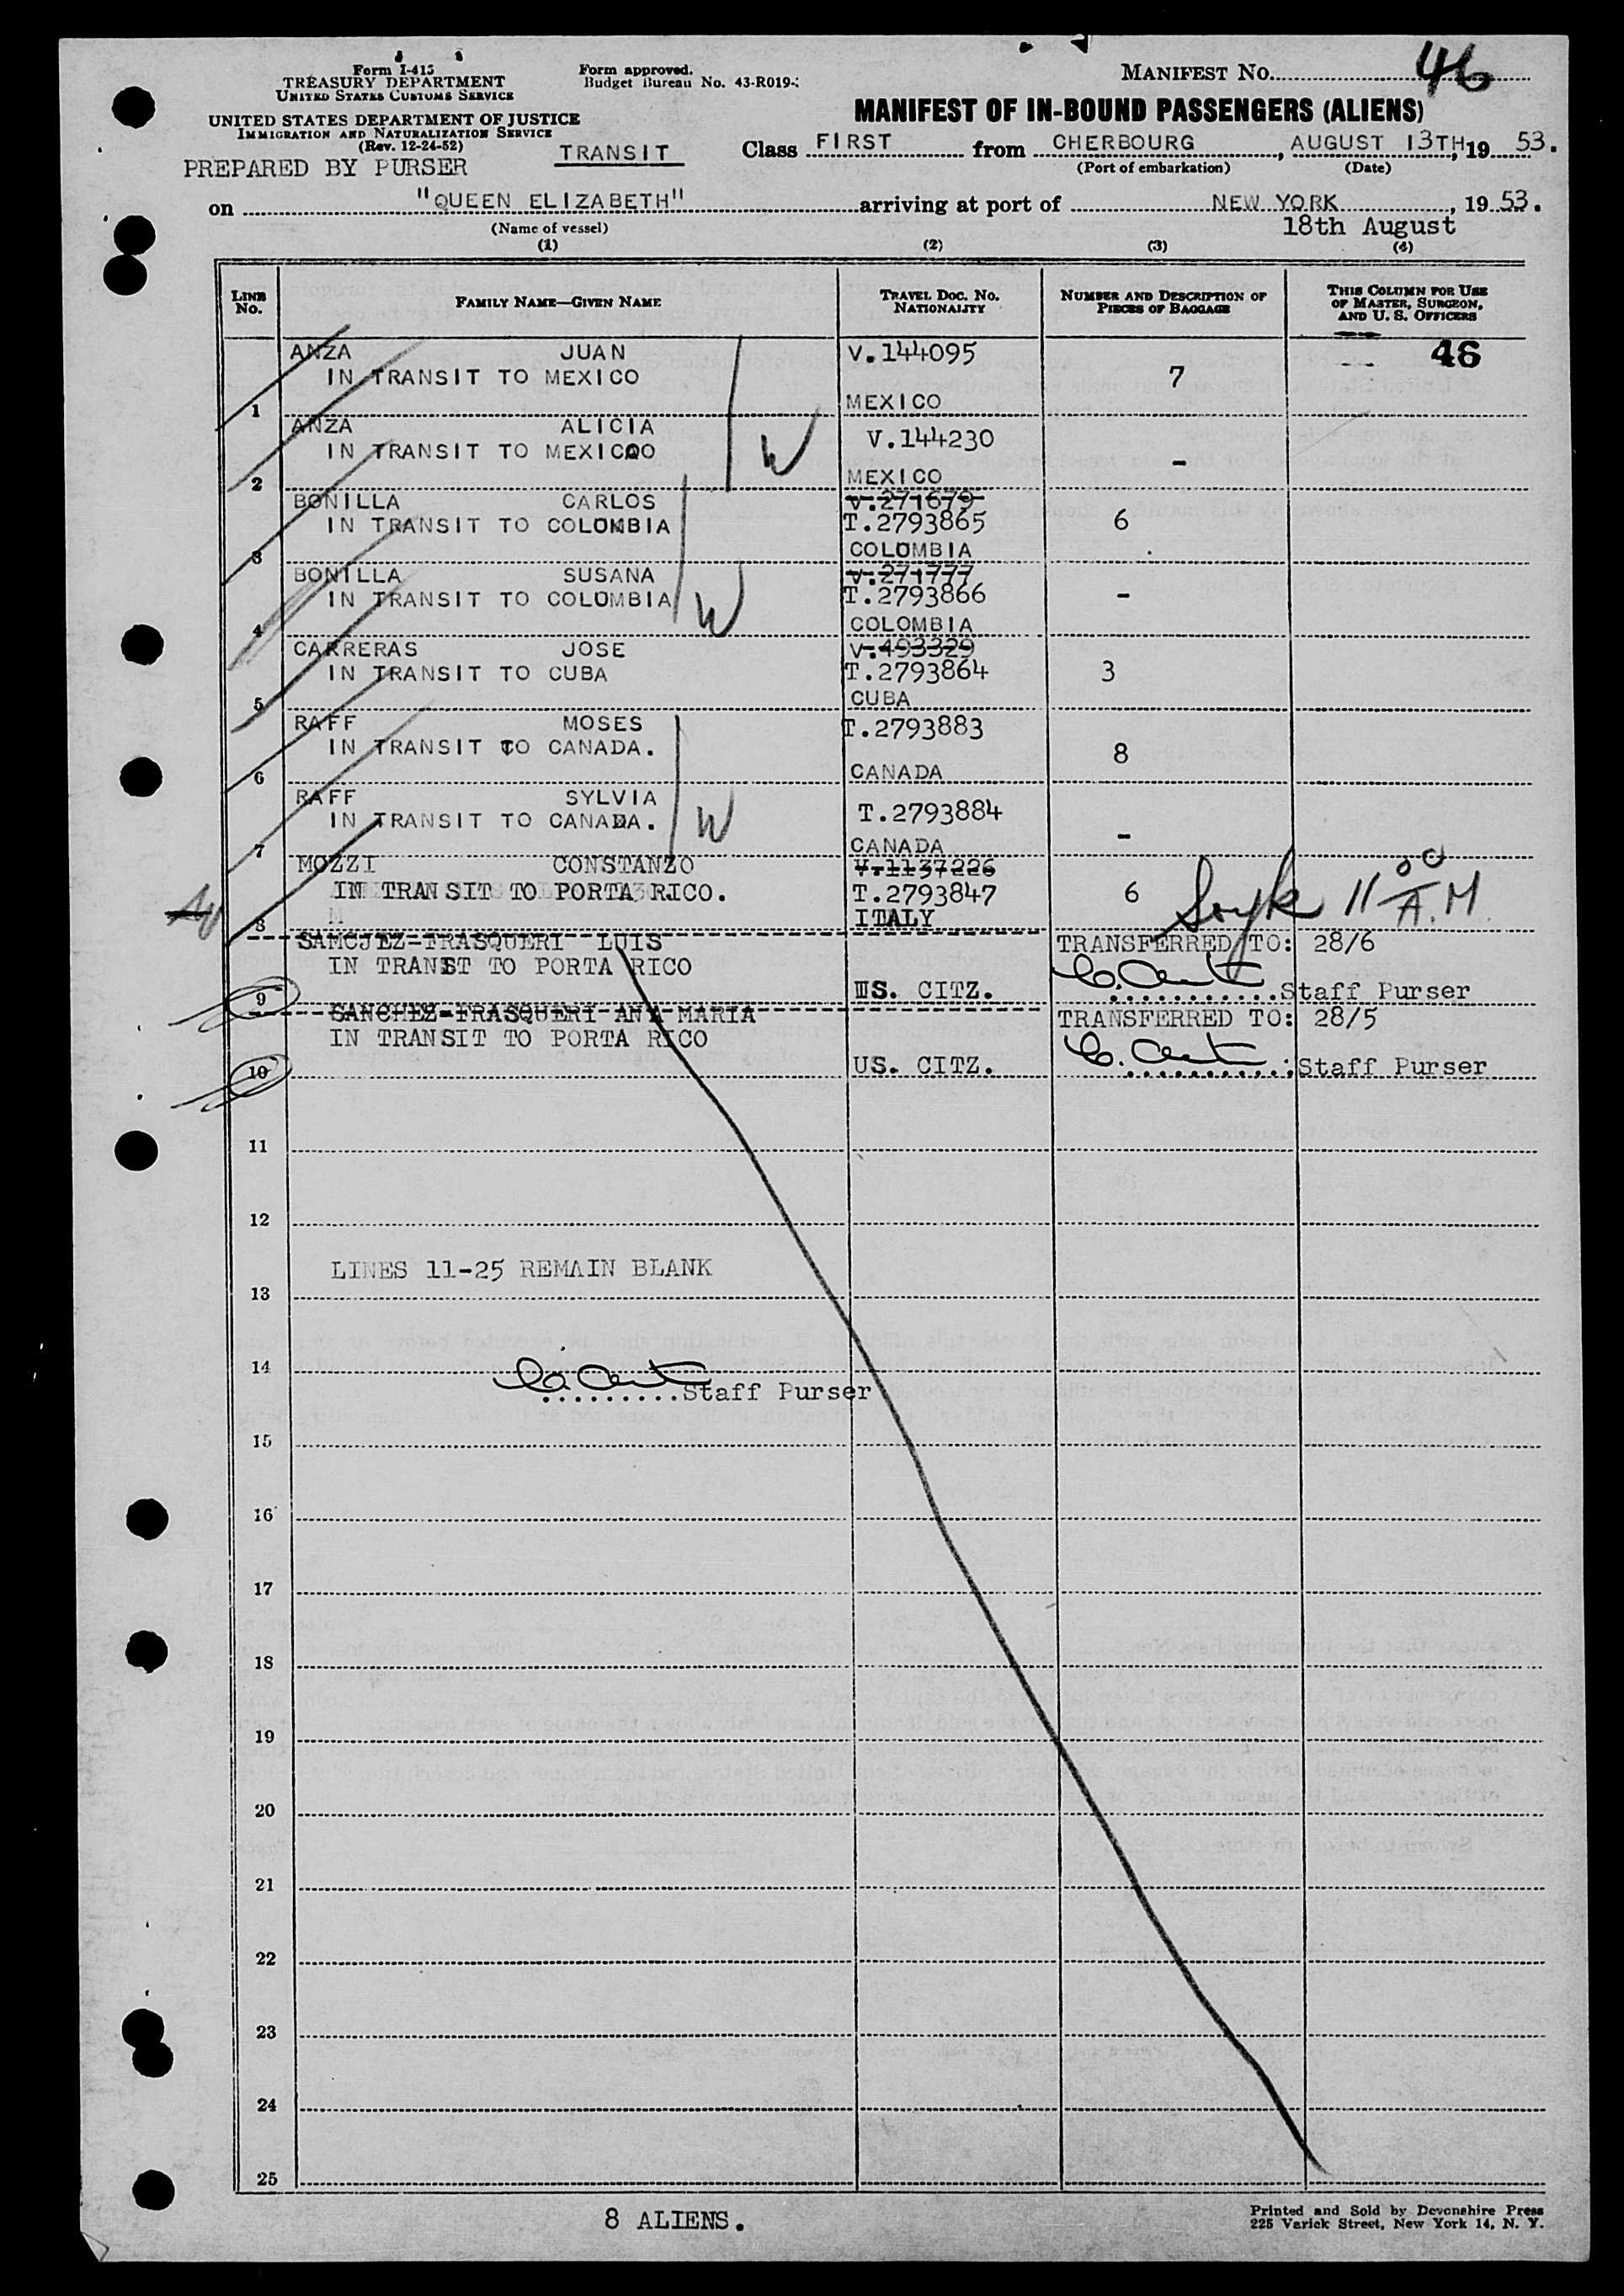 Form I-415
TREASURY DEPARTMENT
UNITED STATES CUSTOMS SERVICE
UNITED STATES DEPARTMENT OF JUSTICE
IMMIGRATION AND NATURALIZATION SERVICE
(Rev. 12-24-52)
PREPARED BY PURSER
TRANSIT
Form approved.
Budget Bureau No. 43-R019-
MANIFEST NO. 46
MANIFEST OF IN-BOUND PASSENGERS (ALIENS)
Class FIRST from CHERBOURG, AUGUST 13TH, 19 53.
(Port of embarkation) (Date)
on "QUEEN ELIZABETH" arriving at port of NEW YORK, 19 53.
(Name of vessel) 18th August
(1) (2) (3) (4)
LINE NO. FAMILY NAME—GIVEN NAME TRAVEL DOC. NO. NATIONALITY NUMBER AND DESCRIPTION OF PIECES OF BAGGAGE THIS COLUMN FOR USE OF MASTER, SURGEON, AND U. S. OFFICERS
ANZA JUAN V.144095 46
IN TRANSIT TO MEXICO 7
1 MEXICO
ANZA ALICIA V.144230
IN TRANSIT TO MEXICOO - W
2 MEXICO
BONILLA CARLOS V.271679
IN TRANSIT TO COLOMBIA T.2793865 6
3 COLOMBIA
BONILLA SUSANA V.271777
IN TRANSIT TO COLOMBIA T.2793866 - W
4 COLOMBIA
CARRERAS JOSE V.493329
IN TRANSIT TO CUBA T.2793864 3
5 CUBA
RAFF MOSES T.2793883
IN TRANSIT TO CANADA. 8
6 CANADA
RAFF SYLVIA T.2793884
IN TRANSIT TO CANADA. - W
7 CANADA
MOZZI CONSTANZO V.1137226
IN TRANSIT TO PORTA RICO. T.2793847 6 11 00 A.M.
8 ITALY
SAMCJEZ-FRASQUERI LUIS TRANSFERRED TO: 28/6
IN TRANST TO PORTA RICO
9 US. CITZ. Staff Purser
SANCHEZ-FRASQUERI ANA MARIA TRANSFERRED TO: 28/5
IN TRANSIT TO PORTA RICO
10 US. CITZ. Staff Purser
11
12
LINES 11-25 REMAIN BLANK
13
14
Staff Purser
15
16
17
18
19
20
21
22
23
24
25
8 ALIENS.
Printed and Sold by Devonshire Press
225 Varick Street, New York 14, N. Y.